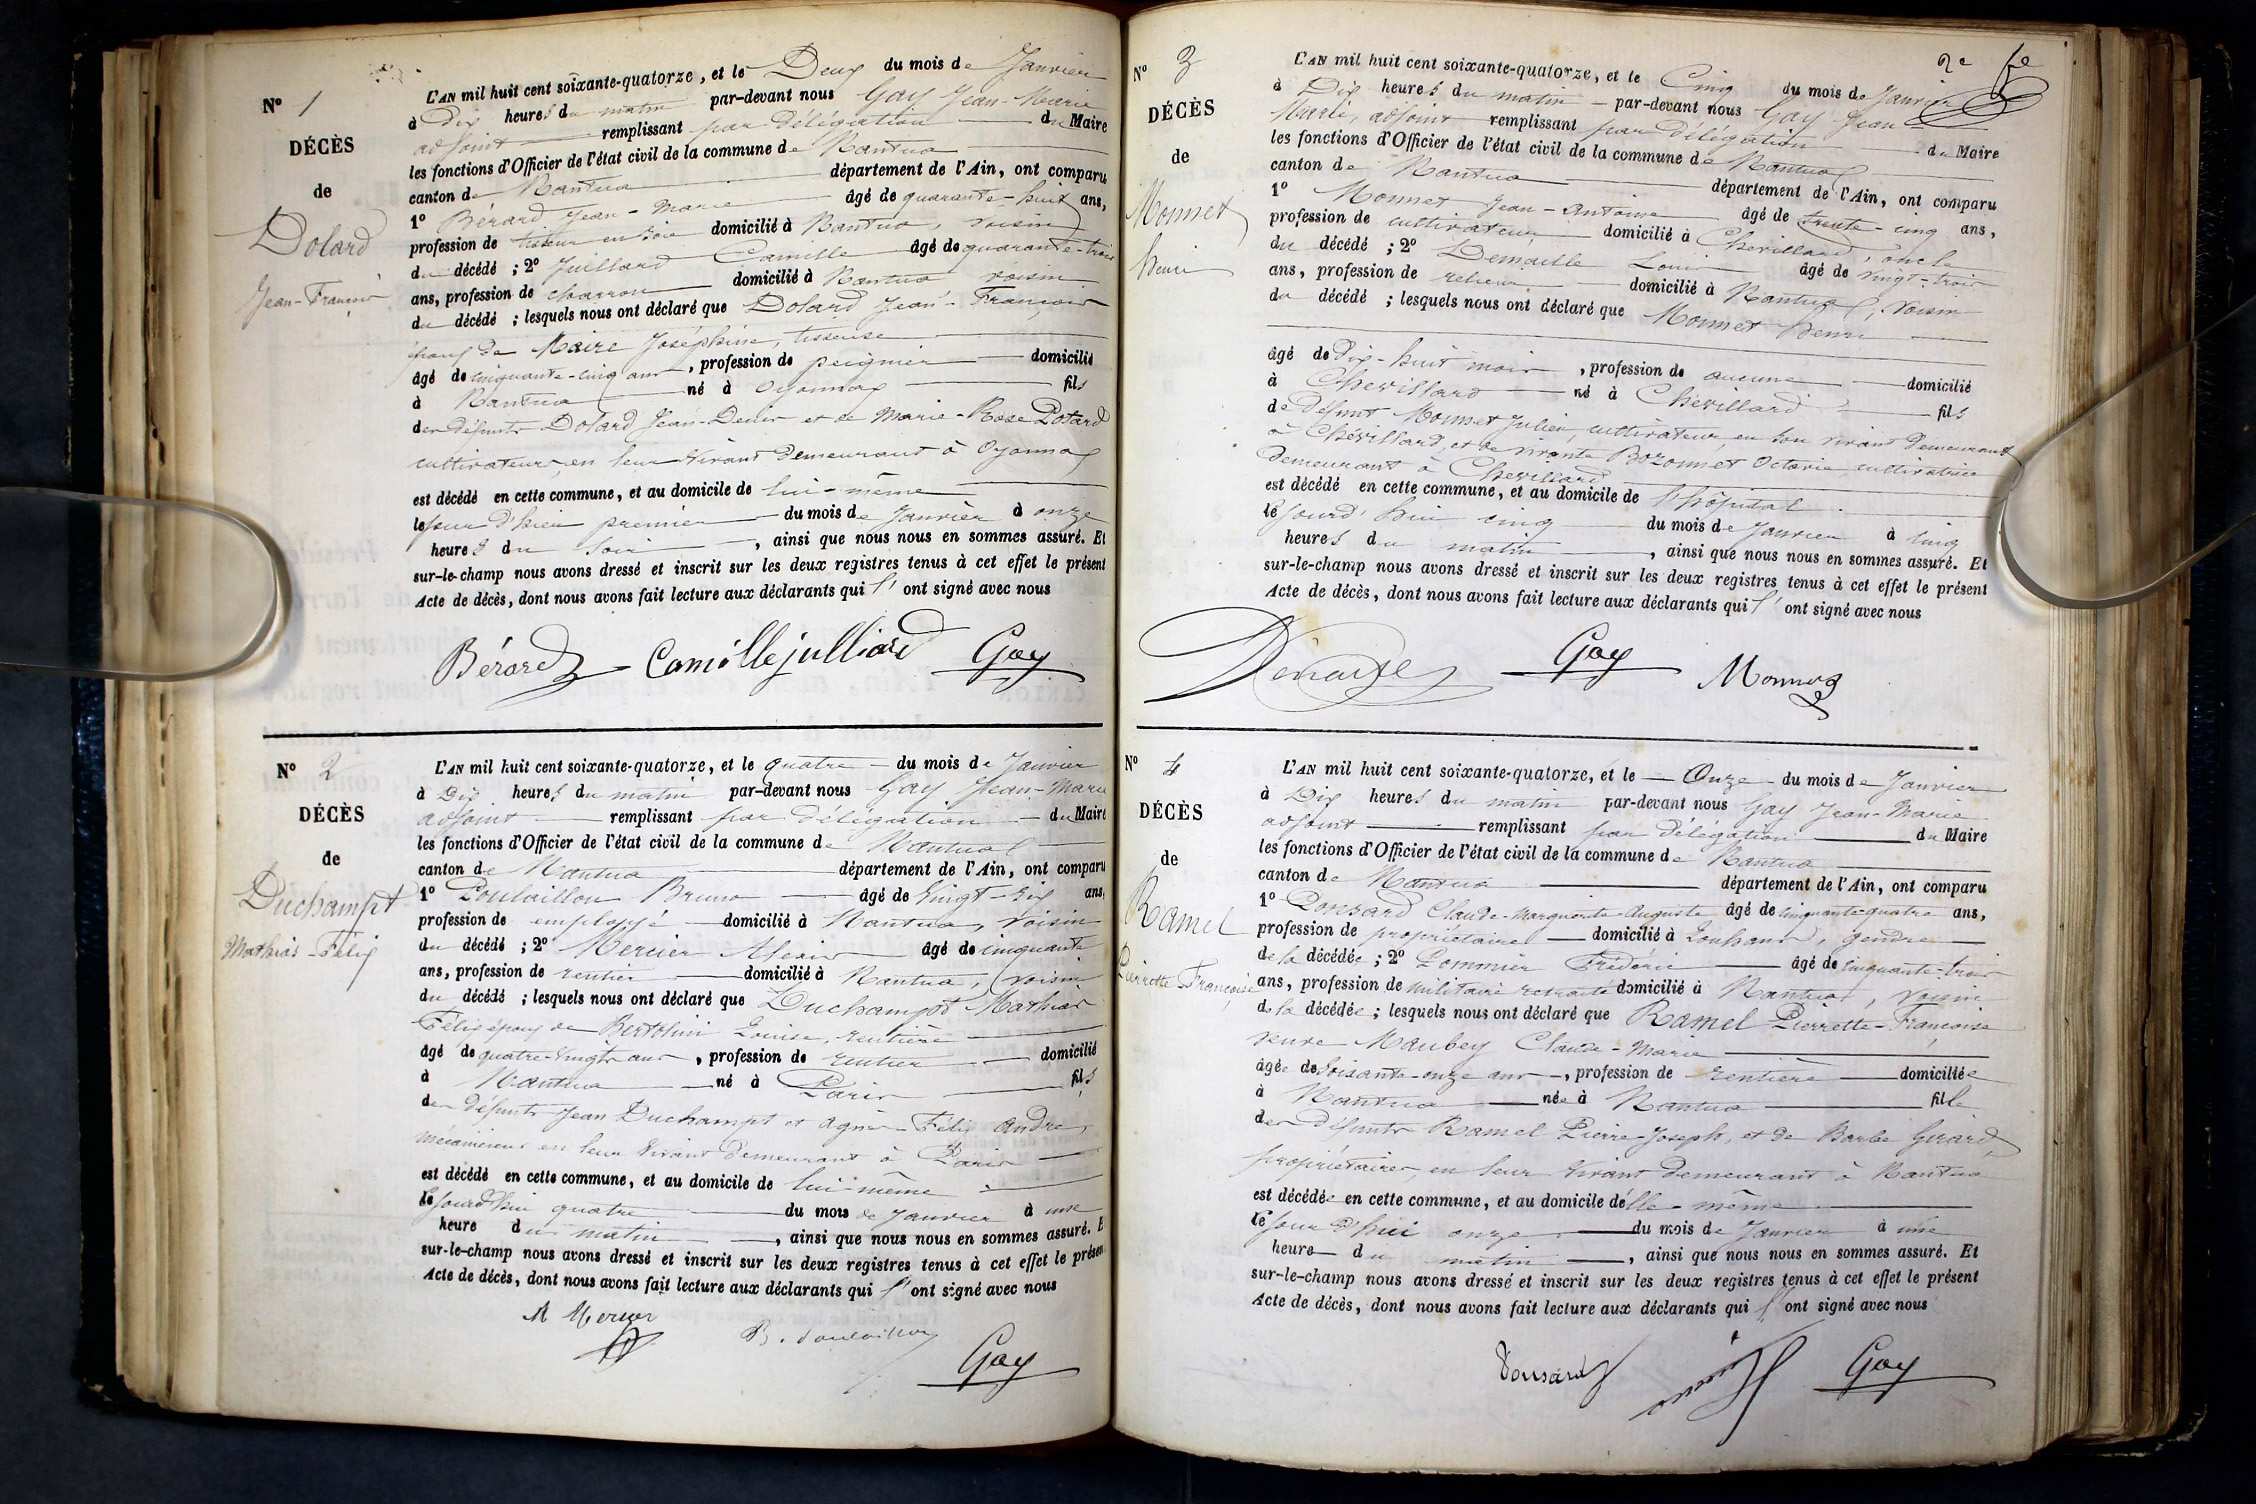 N° 1
DÉCÈS
de
Dolard
Jean-François
L'AN mil huit cent soixante-quatorze, et le Deux du mois de Janvier
à Dix heures du matin par-devant nous Gay Jean-Marie
adjoint remplissant par délégation du Maire
les fonctions d'Officier de l'état civil de la commune de Nantua
canton de Nantua département de l'Ain, ont comparu
1° Bérard Jean-Marie âgé de quarante-huit ans,
profession de tisseur en soie domicilié à Nantua, voisin
du décédé ; 2° Juillard Camille âgé de quarante-trois
ans, profession de charron domicilié à Nantua voisin
du décédé ; lesquels nous ont déclaré que Dolard Jean-François
époux de Maire Joséphine, tisseuse
âgé de cinquante-cinq ans, profession de peignier domicilié
à Nantua né à Oyonnax fils
des défunts Dolard Jean-Denis et de Marie-Rose Dolard
cultivateurs en leur vivant demeurant à Oyonnax
est décédé en cette commune, et au domicile de lui-même
le jour d'hier premier du mois de Janvier à onze
heures du soir, ainsi que nous nous en sommes assuré. Et
sur-le-champ nous avons dressé et inscrit sur les deux registres tenus à cet effet le présent
Acte de décès, dont nous avons fait lecture aux déclarants qui l'ont signé avec nous
Bérard Camille julliard Gay
N° 2
DÉCÈS
de
Duchampt
Mathias-Félix
L'AN mil huit cent soixante-quatorze, et le quatre du mois de Janvier
à Dix heures du matin par-devant nous Gay Jean-Marie
adjoint remplissant par délégation du Maire
les fonctions d'Officier de l'état civil de la commune de Nantua
canton de Nantua département de l'Ain, ont comparu
1° Poulaillou Bruno âgé de vingt-six ans,
profession de employé domicilié à Nantua, voisin
du décédé ; 2° Mercier Alexis âgé de cinquante
ans, profession de rentier domicilié à Nantua, voisin
du décédé ; lesquels nous ont déclaré que Duchampt Mathias
Félix époux de Berthlini Louise, rentière
âgé de quatre-vingts ans, profession de rentier domicilié
à Nantua né à Paris fils
des défunts Jean Duchampt et Agnès-Félix André,
mécanicien en leur vivant demeurant à Paris
est décédé en cette commune, et au domicile de lui-même
le jourd'hui quatre du mois de Janvier à une
heure du matin, ainsi que nous nous en sommes assuré. E
sur-le-champ nous avons dressé et inscrit sur les deux registres tenus à cet effet le présen
Acte de décès, dont nous avons fait lecture aux déclarants qui l'ont signé avec nous
A Mercier B. Poulaillou Gay
2e fe
N° 3
DÉCÈS
de
Monnet
henri
L'AN mil huit cent soixante-quatorze, et le Cinq du mois de Janvier
à Dix heures du matin par-devant nous Gay Jean-
Marie, adjoint remplissant par délégation du Maire
les fonctions d'Officier de l'état civil de la commune de Nantua
canton de Nantua département de l'Ain, ont comparu
1° Monnet Jean-Antoine âgé de trente-cinq ans,
profession de cultivateur domicilié à Chevillard, oncle
du décédé ; 2° Demaille Louis âgé de vingt-trois
ans, profession de relieur domicilié à Nantua, voisin
du décédé ; lesquels nous ont déclaré que Monnet henri
âgé de Dix-huit mois, profession de aucune domicilié
à Chevillard né à Chévillard fils
de défunt Monnet Julien, cultivateur en son vivant demeurant
à Chévillard, et de vivante Bozonnet Octavie cultivatrice
demeurant à Chevillard
est décédé en cette commune, et au domicile de l'hôpital
le jourd'hui cinq du mois de Janvier à cinq
heures du matin, ainsi que nous nous en sommes assuré. Et
sur-le-champ nous avons dressé et inscrit sur les deux registres tenus à cet effet le présent
Acte de décès, dont nous avons fait lecture aux déclarants qui l'ont signé avec nous
Gay Monnet
N° 4
DÉCÈS
de
Ramel
Pierrette Françoise
L'AN mil huit cent soixante-quatorze, et le Onze du mois de Janvier
à Dix heures du matin par-devant nous Gay Jean-Marie
adjoint remplissant par délégation du Maire
les fonctions d'Officier de l'état civil de la commune de Nantua
canton de Nantua département de l'Ain, ont comparu
1° Ponsard Claude-Marguerite-Auguste âgé de cinquante-quatre ans,
profession de propriétaire domicilié à Louhans, gendre
de la décédée ; 2° Pommier Frédéric âgé de cinquante-trois
ans, profession de militaire retraité domicilié à Nantua, voisin
de la décédée ; lesquels nous ont déclaré que Ramel Pierrette-Françoise
veuve Maubey Claude-Marie
âgée de soixante-onze ans, profession de rentière domiciliée
à Nantua née à Nantua fille
des défunts Ramel Pierre-Joseph, et de Barbe Girard,
propriétaires, en leur vivant demeurant à Nantua
est décédée en cette commune, et au domicile d'elle-même
le jour d'hui onze du mois de Janvier à une
heure du matin, ainsi que nous nous en sommes assuré. Et
sur-le-champ nous avons dressé et inscrit sur les deux registres tenus à cet effet le présent
Acte de décès, dont nous avons fait lecture aux déclarants qui l'ont signé avec nous
Ponsard Gay